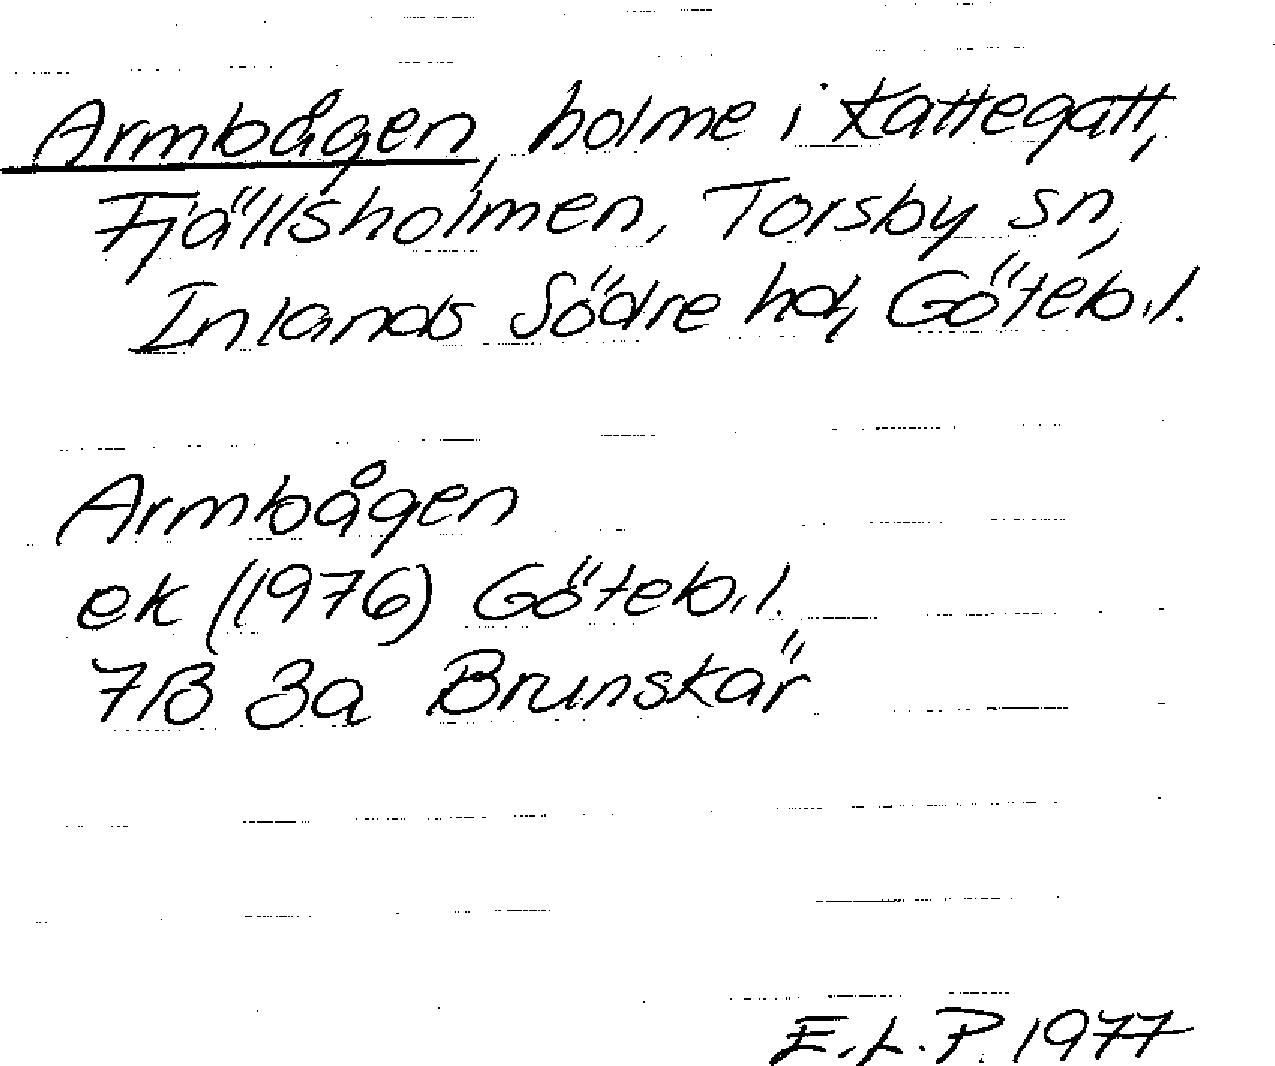 Armbågen, holme i Kattegatt,
Fjällsholmen, Torsby sn,
Inlands Södre hd, Göteb.l.
Armbågen
ek (1976) Göteb.l.
7B 3a Brunskär
E.L.P. 1977